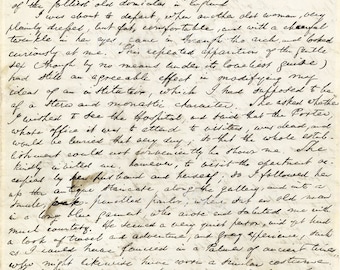 of the jolliest old domiciles in England.
I was about to depart, when another old woman, very
plainly dressed, but fat, comfortable, and with a cheerful
twinkle in her eyes, came in through the arch, and looked
curiously at me. This repeated apparition of the gentle
sex (though by no means under its loveliest guise)
had still an agreeable effect in modifying my
ideas of an institution, which I had supposed to be
of a stern and monastic character. She asked whether
I wished to see the Hospital, and said that the Porter,
whose office it was to attend to visitors, was dead, and
would be buried that very day; so that the whole estab-
lishment could not conveniently be shown me. She
kindly invited me, however, to visit the apartment oc-
cupied by her husband and herself; so I followed her
up the antique staircase, along the gallery, and into a
small, oak-panelled parlor, where sat an old man
in a long blue garment, who arose and saluted me with
much courtesy. He seemed a very quiet person, and yet had
a look of travel and adventure, and gray experience, such
as I could have fancied in a Palmer of ancient times
who might likewise have worn a similar costume.